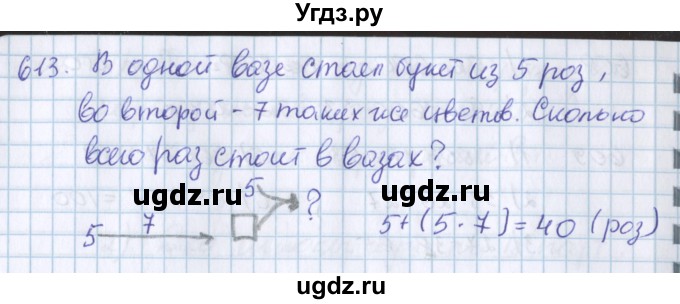 Угдз.ру
613. В одной вазе стоял букет из 5 роз,
во второй - 7 таких же цветов. Сколько
всего раз стоит в вазах?
ugdz.ru ugdz.ru
5 7 5 ? 5+(5·7)=40 (роз)
ugdz.ru ugdz.ru
ugdz.ru